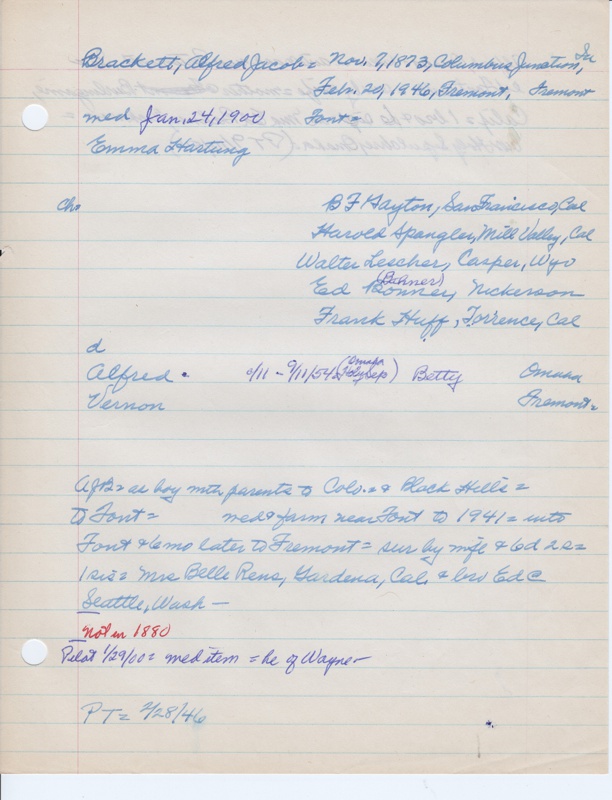 Brackett, Alfred Jacob = Nov. 7, 1873, Columbus Junction, Ia
Feb. 20, 1946, Fremont, Fremont
med Jan. 24, 1900 Font =
Emma Hartung
Ch
B F Gayton, San Francisco, Cal
Harold Spangler, Mill Valley, Cal
Walter Lescher, Casper, Wyo
(Bahner)
Ed Bonney, Nickerson
Frank Huff, Torrence, Cal
d
Alfred. 9/11/54 (Omaha Holy Sep) Betty Omaha
Vernon Fremont =
AJB = as boy with parents to Colo. = & Black Hills =
to Font = med & farm near Font to 1941 = into
Font & 6 mo later to Fremont = sur by wife & 6 d 2 s =
1 sis = Mrs Belle Rens, Gardena, Cal. & bro Ed @
Seattle, Wash —
Not in 1880
Pilot 1/29/00 = med item = he of Wayne —
PT = 2/28/46